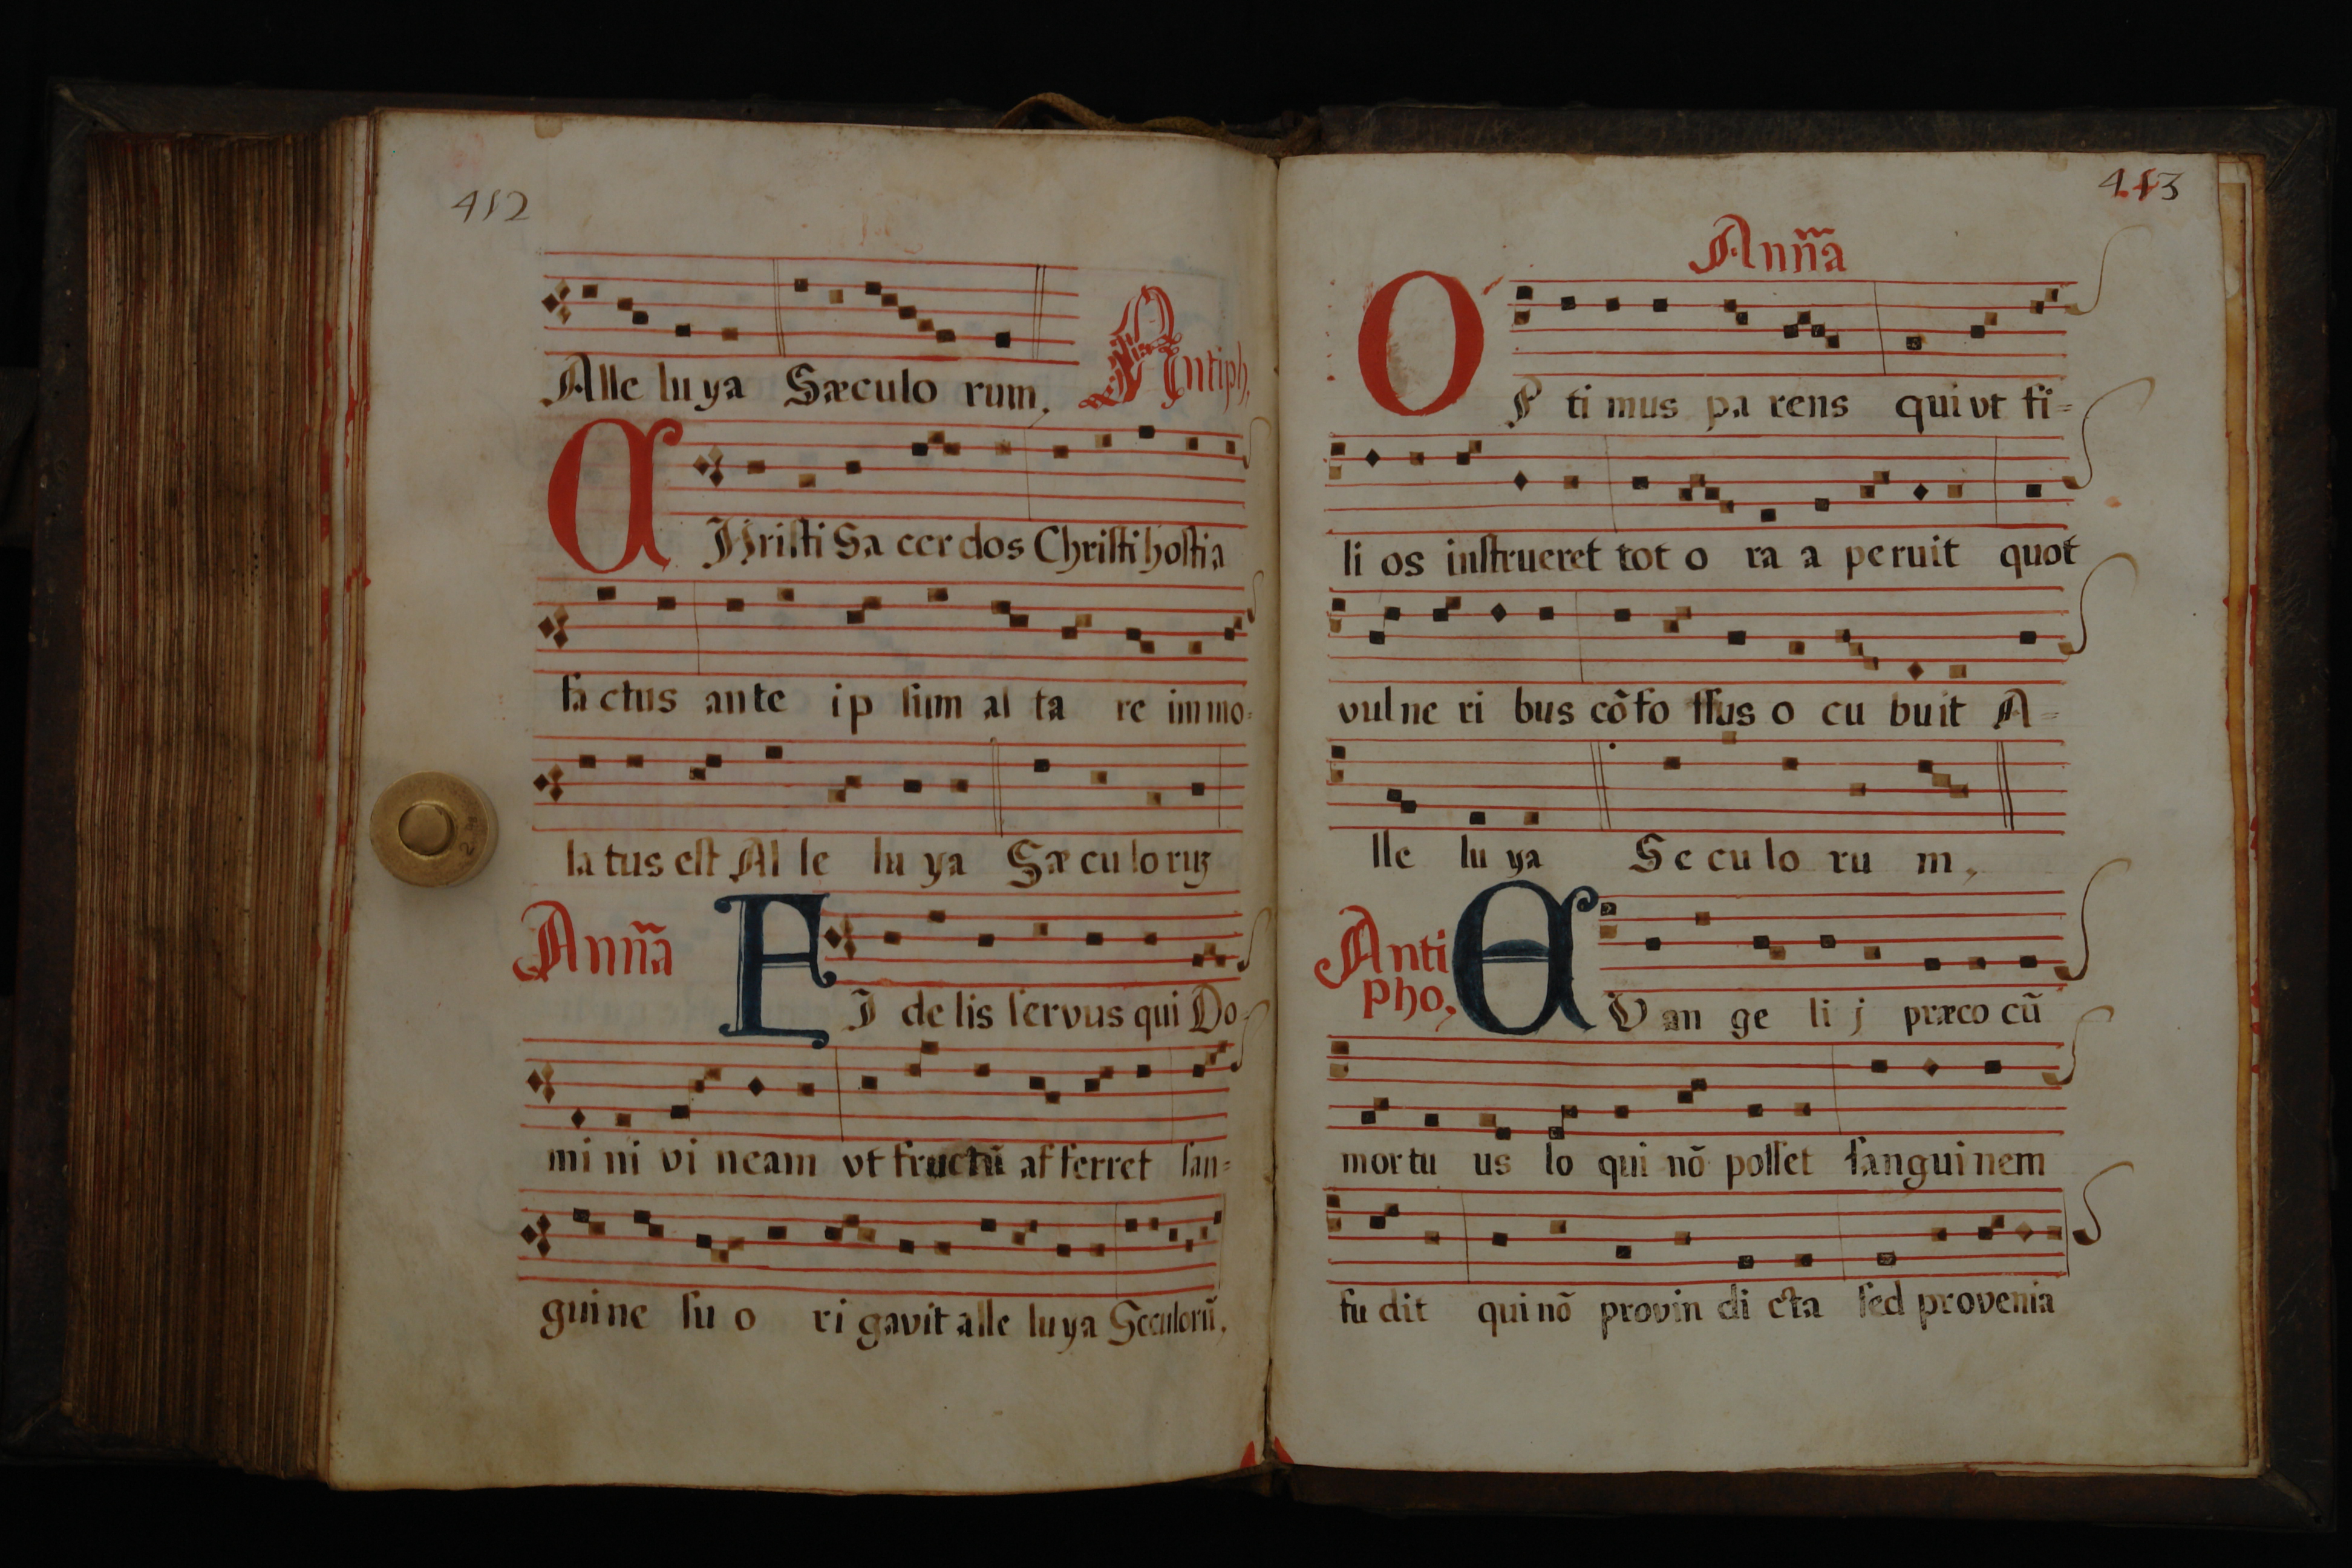 412
Alle lu ya Sæculo rum, Antiph,
C Hriſti Sa cer dos Chriſti hoſtia
fa ctus ante ip ſum al ta re immo-
la tus eſt Al le lu ya Sæ cu lo ruꝫ
Anña F I de lis ſervus qui Do-
mi ni vi neam vt fructũ af ferret ſan-
guine ſu o ri gavit alle lu ya Seculorũ,
413
Anña
O P ti mus pa rens qui vt fi-
li os inſtrueret tot o ra a peruit quot
vulne ri bus cõfo ſſus o cu buit A-
lle lu ya Se cu lo ru m,
Anti
pho, E V an ge li j præco cũ
mor tu us lo qui nõ poſſet ſanguinem
fu dit qui nõ provin di cta ſed provenia